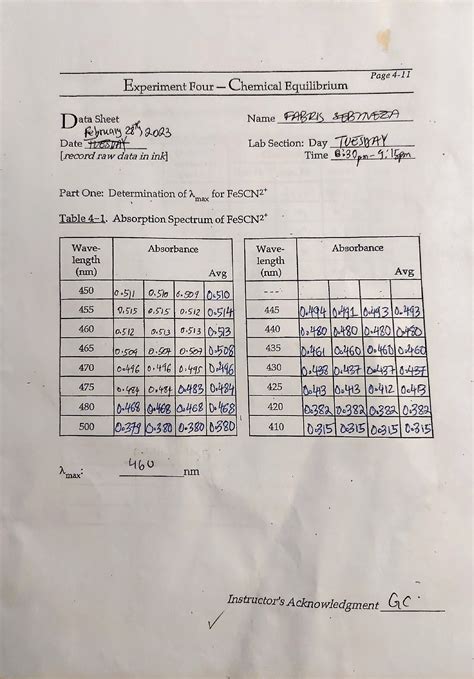 Page 4-11
Experiment Four — Chemical Equilibrium
Data Sheet
Name FABRIS
February 28th, 2023
Date TUESDAY
Lab Section: Day TUESDAY
[record raw data in ink]
Time 6:30pm - 9:15pm
Part One: Determination of λmax for FeSCN²⁺
Table 4–1. Absorption Spectrum of FeSCN²⁺
Wave-length (nm) Absorbance Avg Wave-length (nm) Absorbance Avg
450 0.511 0.510 0.509 0.510 ---
455 0.515 0.515 0.512 0.514 445 0.494 0.491 0.493 0.493
460 0.512 0.513 0.513 0.513 440 0.480 0.480 0.480 0.480
465 0.509 0.507 0.509 0.508 435 0.461 0.460 0.460 0.460
470 0.496 0.496 0.495 0.496 430 0.438 0.437 0.437 0.437
475 0.484 0.484 0.483 0.484 425 0.413 0.413 0.412 0.413
480 0.468 0.468 0.468 0.468 420 0.382 0.382 0.382 0.382
500 0.379 0.380 0.380 0.380 410 0.315 0.315 0.315 0.315
λmax: 460 nm
Instructor's Acknowledgment GC